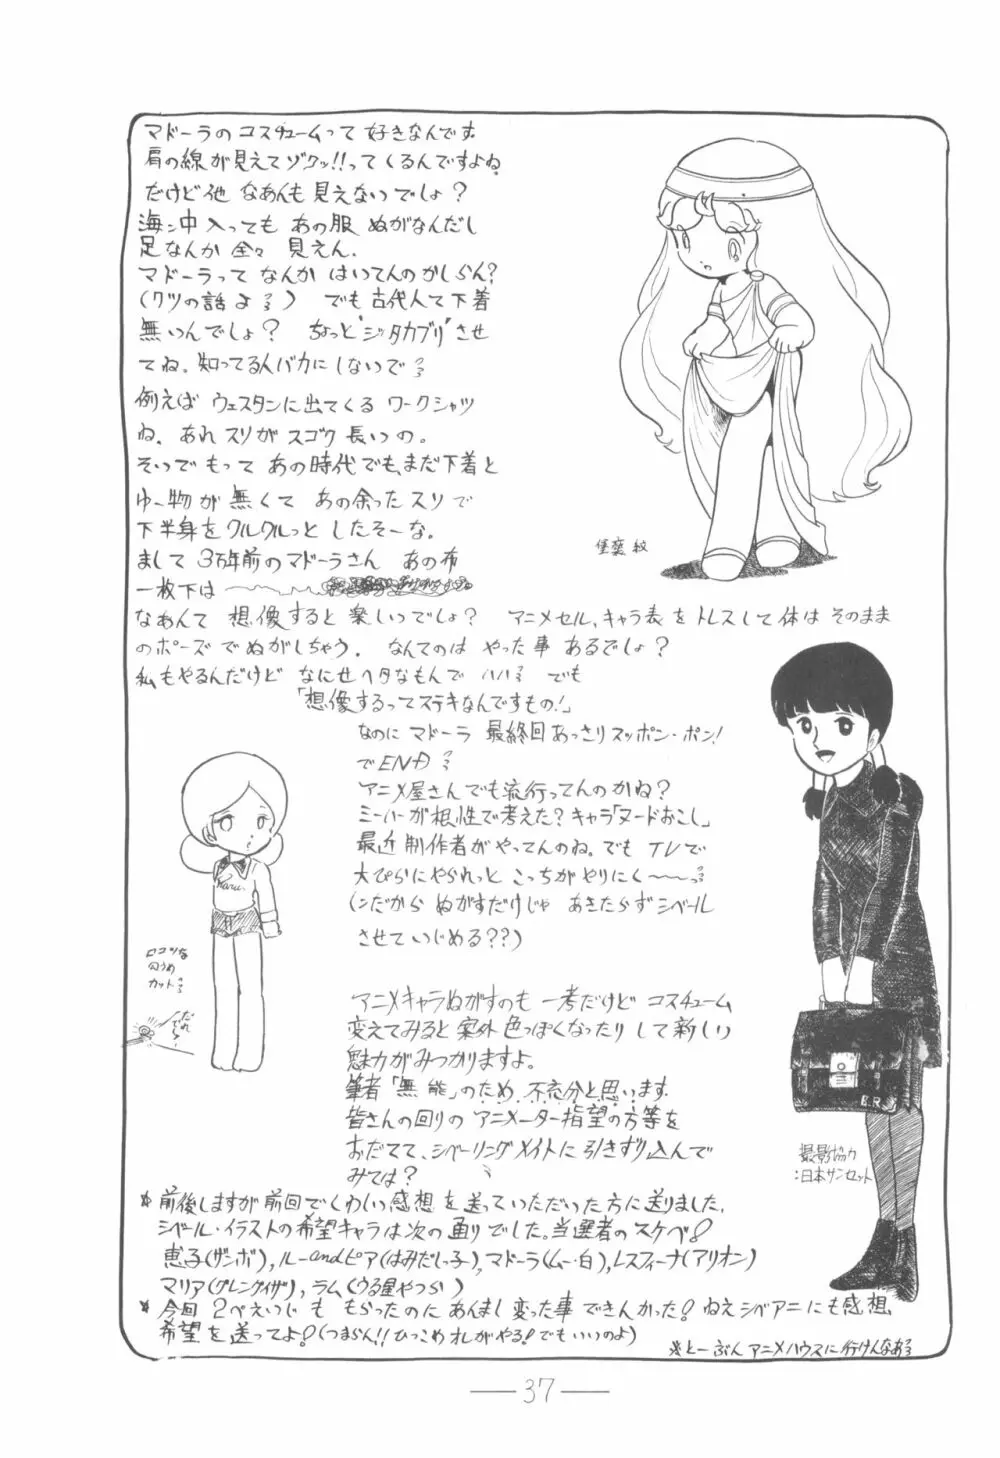 マドーラのコスチュームって好きなんです。
肩の線が見えてゾクッ!!ってくるんですよね。
だけど他 なあんも見えないでしょ?
海ン中入っても あの服 ぬがなんだし
足なんか全々 見えん.
マドーラって なんか はいてんのかしらん?
(クツの話よ) でも古代人て下着
無いんでしょ? ちょっと"ジッタカブリ"させ
てね。知ってる人バカにしないで
例えば ウェスタンに出てくる ワークシャツ
ね. あれスソがスゴク長いの。
そいでもって あの時代でも、まだ下着と
ゆー物が無くて あの余ったスソで
下半身をクルクルっと したそーな。
まして3万年前のマドーラさん あの布
一枚下は
なあんて 想像すると楽しいでしょ? アニメセル、キャラ表をトレスして体はそのまま
のポーズでぬがしちゃう. なんてのは やった事あるでしょ?
私もやるんだけど なにせヘタなもんで ハハ でも
「想像するってステキなんですもの!」
なのに マドーラ 最終回あっさりスッポン・ポン!
でEND
アニメ屋さんでも流行ってんのかね?
ミーハーが根性で考えた?キャラ「ヌードおこし」
最近制作者がやってんのね。でも TVで
大ぴらにやられっと こっちがやりにく〜〜っ
(だから ぬがすだけじゃ あきたらずシベール
させていじめる??)
ロコツな
穴うめ
カット
だれ
でぇ〜
Karu
アニメキャラぬがすのも 一考だけど コスチューム
変えてみると案外色っぽくなったりして新しい
魅力がみつかりますよ。
筆者「無能」のため 不充分と思います.
皆さんの回りの アニメーター指望の方等を
おだてて、シベーリングメイトに引きずり込んで
みては?
B.R
撮影協力
:日本サンセット
*前後しますが前回でくわしい感想を送っていただいた方に送りました.
シベール・イラストの希望キャラは次の通りでした。当選者のスケベ!
恵子(ザンボ),ルーandピア(はみだしっ子),マドーラ(ムー・白),レスフィーナ(アリオン)
マリア(グレンダイザ),ラム(うる星やつら)
*今回 2ぺえいじも もらったのにあんまし変った事できんかった! ねえシベアニにも感想、
希望を送ってよ!(つまらん!!ひっこめオレがやる!でもいいのよ)
※とーぶん アニメハウスに行けんなあ
— 37 —